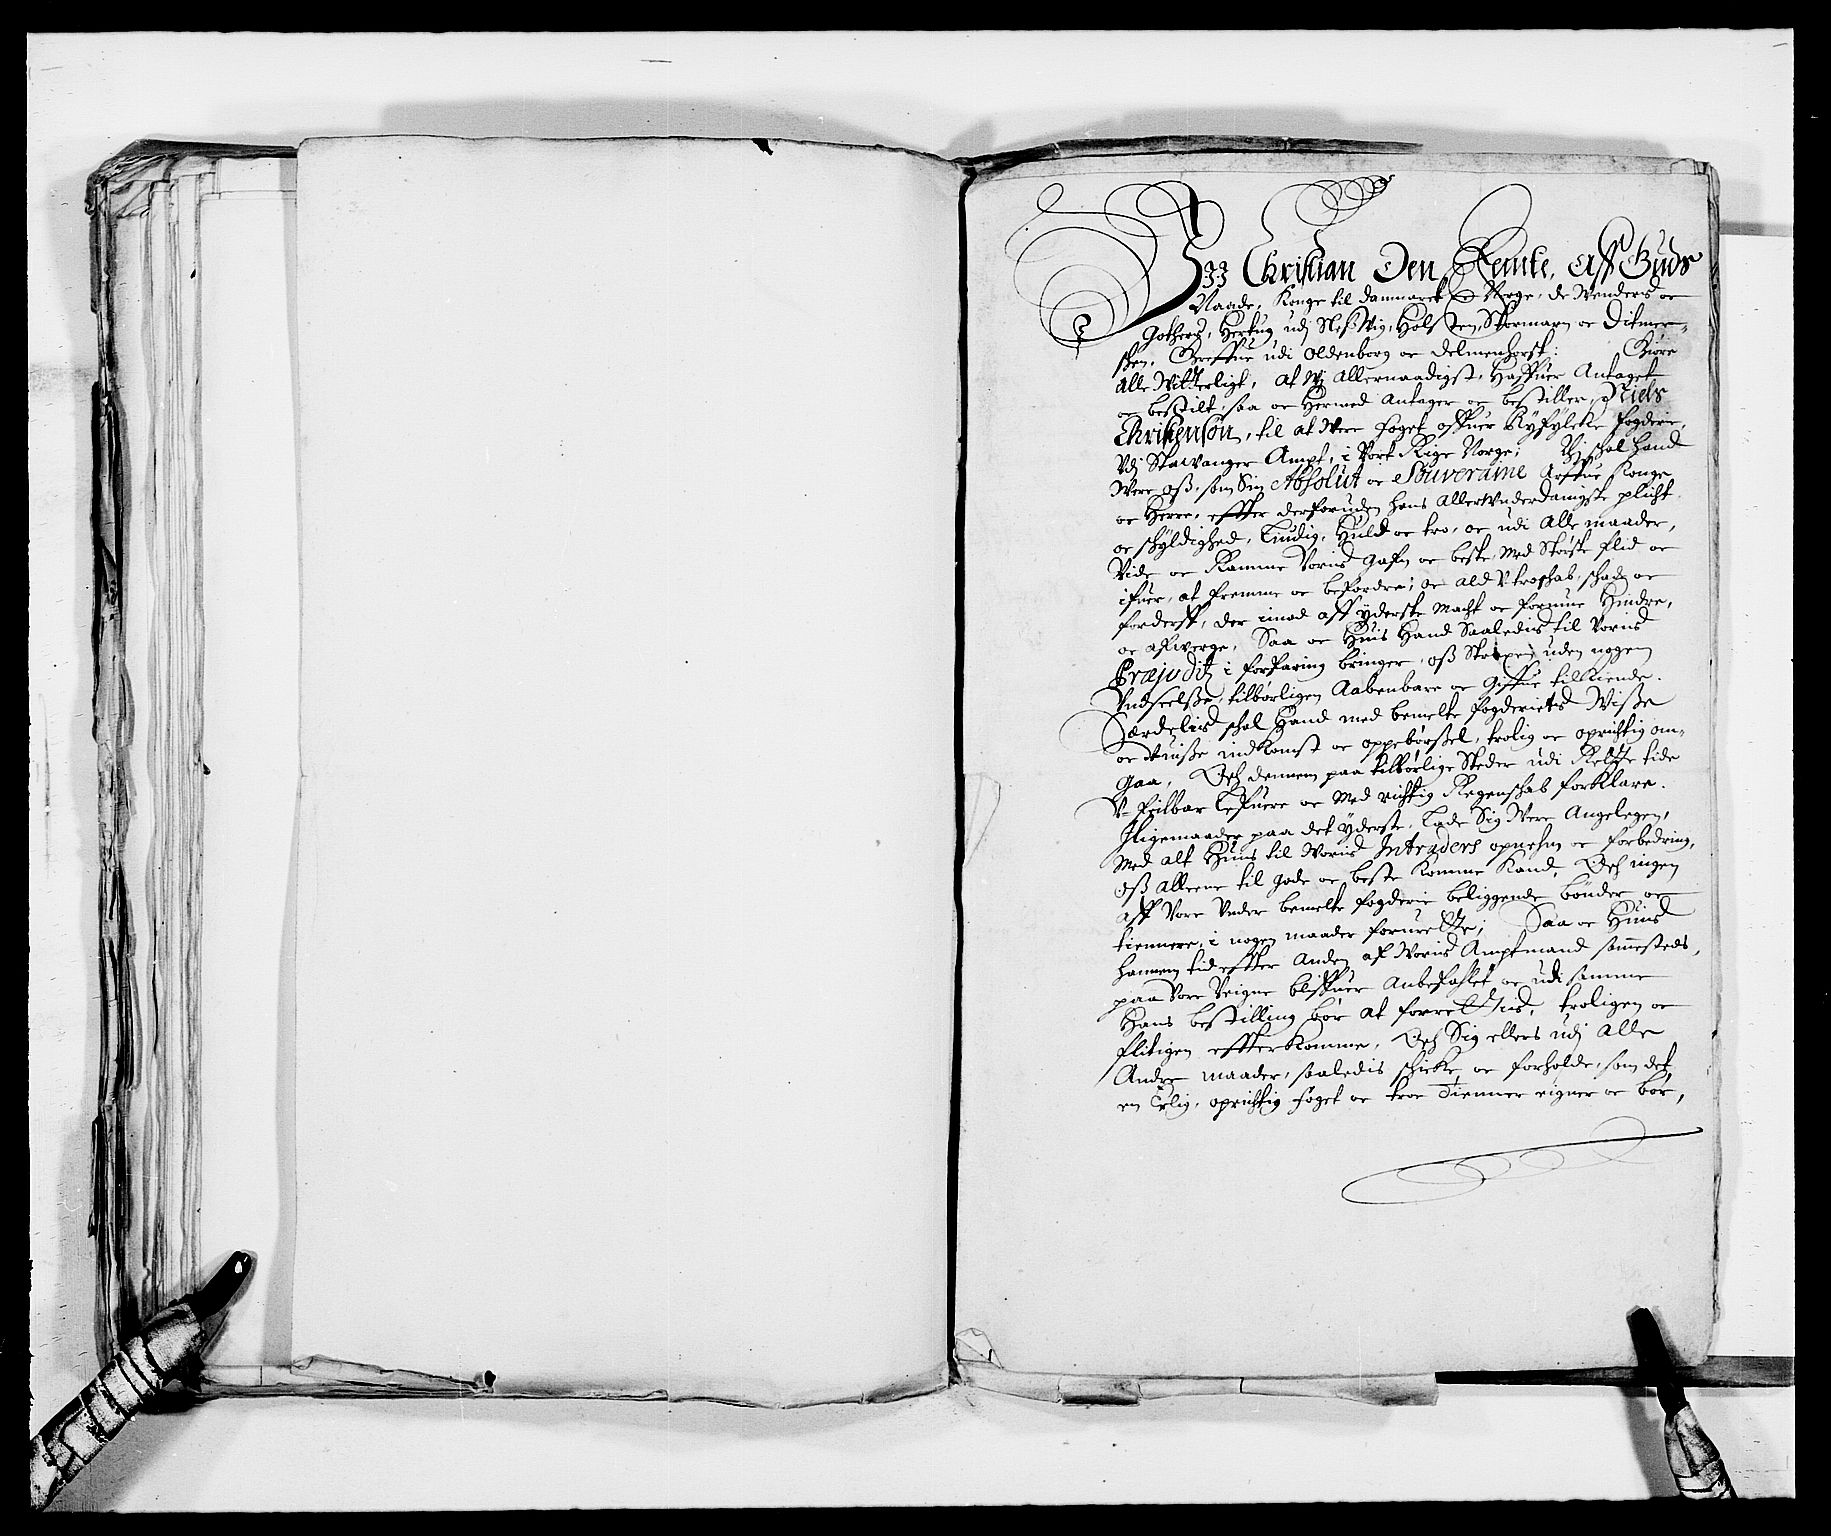 Wii Christian Den Femte, Aff Guds
Naade, Konge til Danmarck oc Norge, de Wenders oc
Gothers, Hertug udj Sleßwig, Holsten, Stormarn oc Ditmer-
sken, Greffue udi Oldenborg oc Delmenhorst: Giøre
Alle Witterligt, At Wj Allernaadigst, Haffuer Antaget
oc bestilt, saa oc Hermed Antager oc bestiller, Niels
Christenson, til at Were Foget offuer Ryfylcke Fogderie,
Vdj Stawanger Ampt, i Vort Rige Norge; Vj schal Hand
Were oß, som Sin Absolut oc Souveraine Arffue Konge
oc Herre, effter derforuden hans Allerunderdanigste plicht
oc schyldighed, Liudig, Huld oc tro, oc udi Alle maader,
Vide oc Ramme Voris Gafn oc beste, Med Største flid oc
ifuer, at fremme oc befordre; oc Ald Vtroschab, schade oc
forderff, der imod aff yderste Macht oc formue Hindre,
oc Afverge, Saa oc Huis Hand Saaledis til Voris
Præjuditz i forfaring bringer, oß Straxen uden nogen
Undseelße, tilbørligen Aabenbare oc Giffue tilkiende.
Særdelis schal Hand med bemelte Fogderiets Wiße
oc Vuiße indkomst oc oppebørßel, trolig oc oprichtig om-
gaa, Och dennem paa tilbørlige Steder udi Rette tide
V-feilbar Lefuere oc Med richtig Regenschab forklare.
Iligemaader paa det yderste, Lade Sig Were Angelegen,
Med alt Huis til Woris Intraders opnehm oc forbedring,
oß Alleene til gode oc beste Komme Kand, Och ingen
aff Vore Under bemelte Fogderie beliggende bønder oc
tiennere, i nogen maader forurette; Saa oc Huis
hannem tid effter Anden af Woris Amptmand sammesteds,
paa Vore Veigne bliffuer Anbefahlet oc udi samme
Hans bestilling bør at forrettis, troligen oc
flitigen effterkomme, Och Sig ellers udj Alle
Andre maader, saaledis schicke oc forholde, som det
en Ærlig, oprichtig Foget oc troe Tienner eigner oc bør,